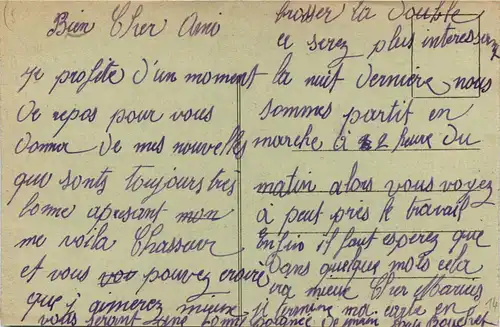 Bien Cher Ami
je profite d'un moment
de repos pour vous
donner de mes nouvelles
que sonts toujours très
bonne apresant mon
me voila Chasseur
et vous pouvez croire
que j aimerez mieux
vous serant une bonne
brosser la double
ce serez plus interessen
la nuit dernière nous
sommes partit en
marche à 2 heure du
matin alors vous voyez
à peut près le travail
Enfin il faut esperez que
Dans quelque mois cela
ira mieux Cher Marius
je termine ma carte en